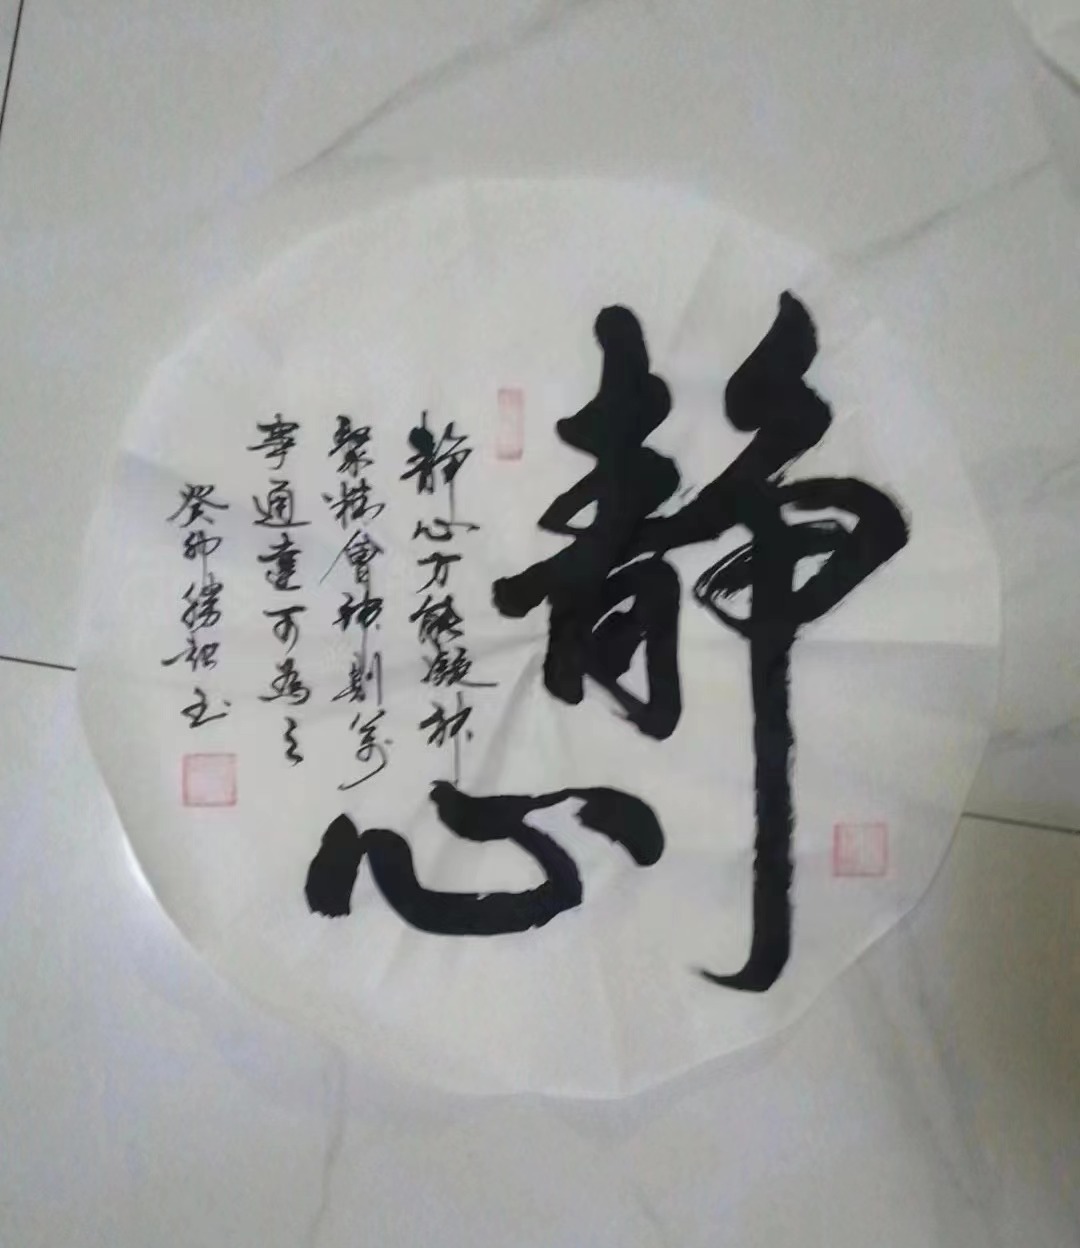 静心
静心方能凝神
聚精會神則萬
事通達可為之
癸卯 書